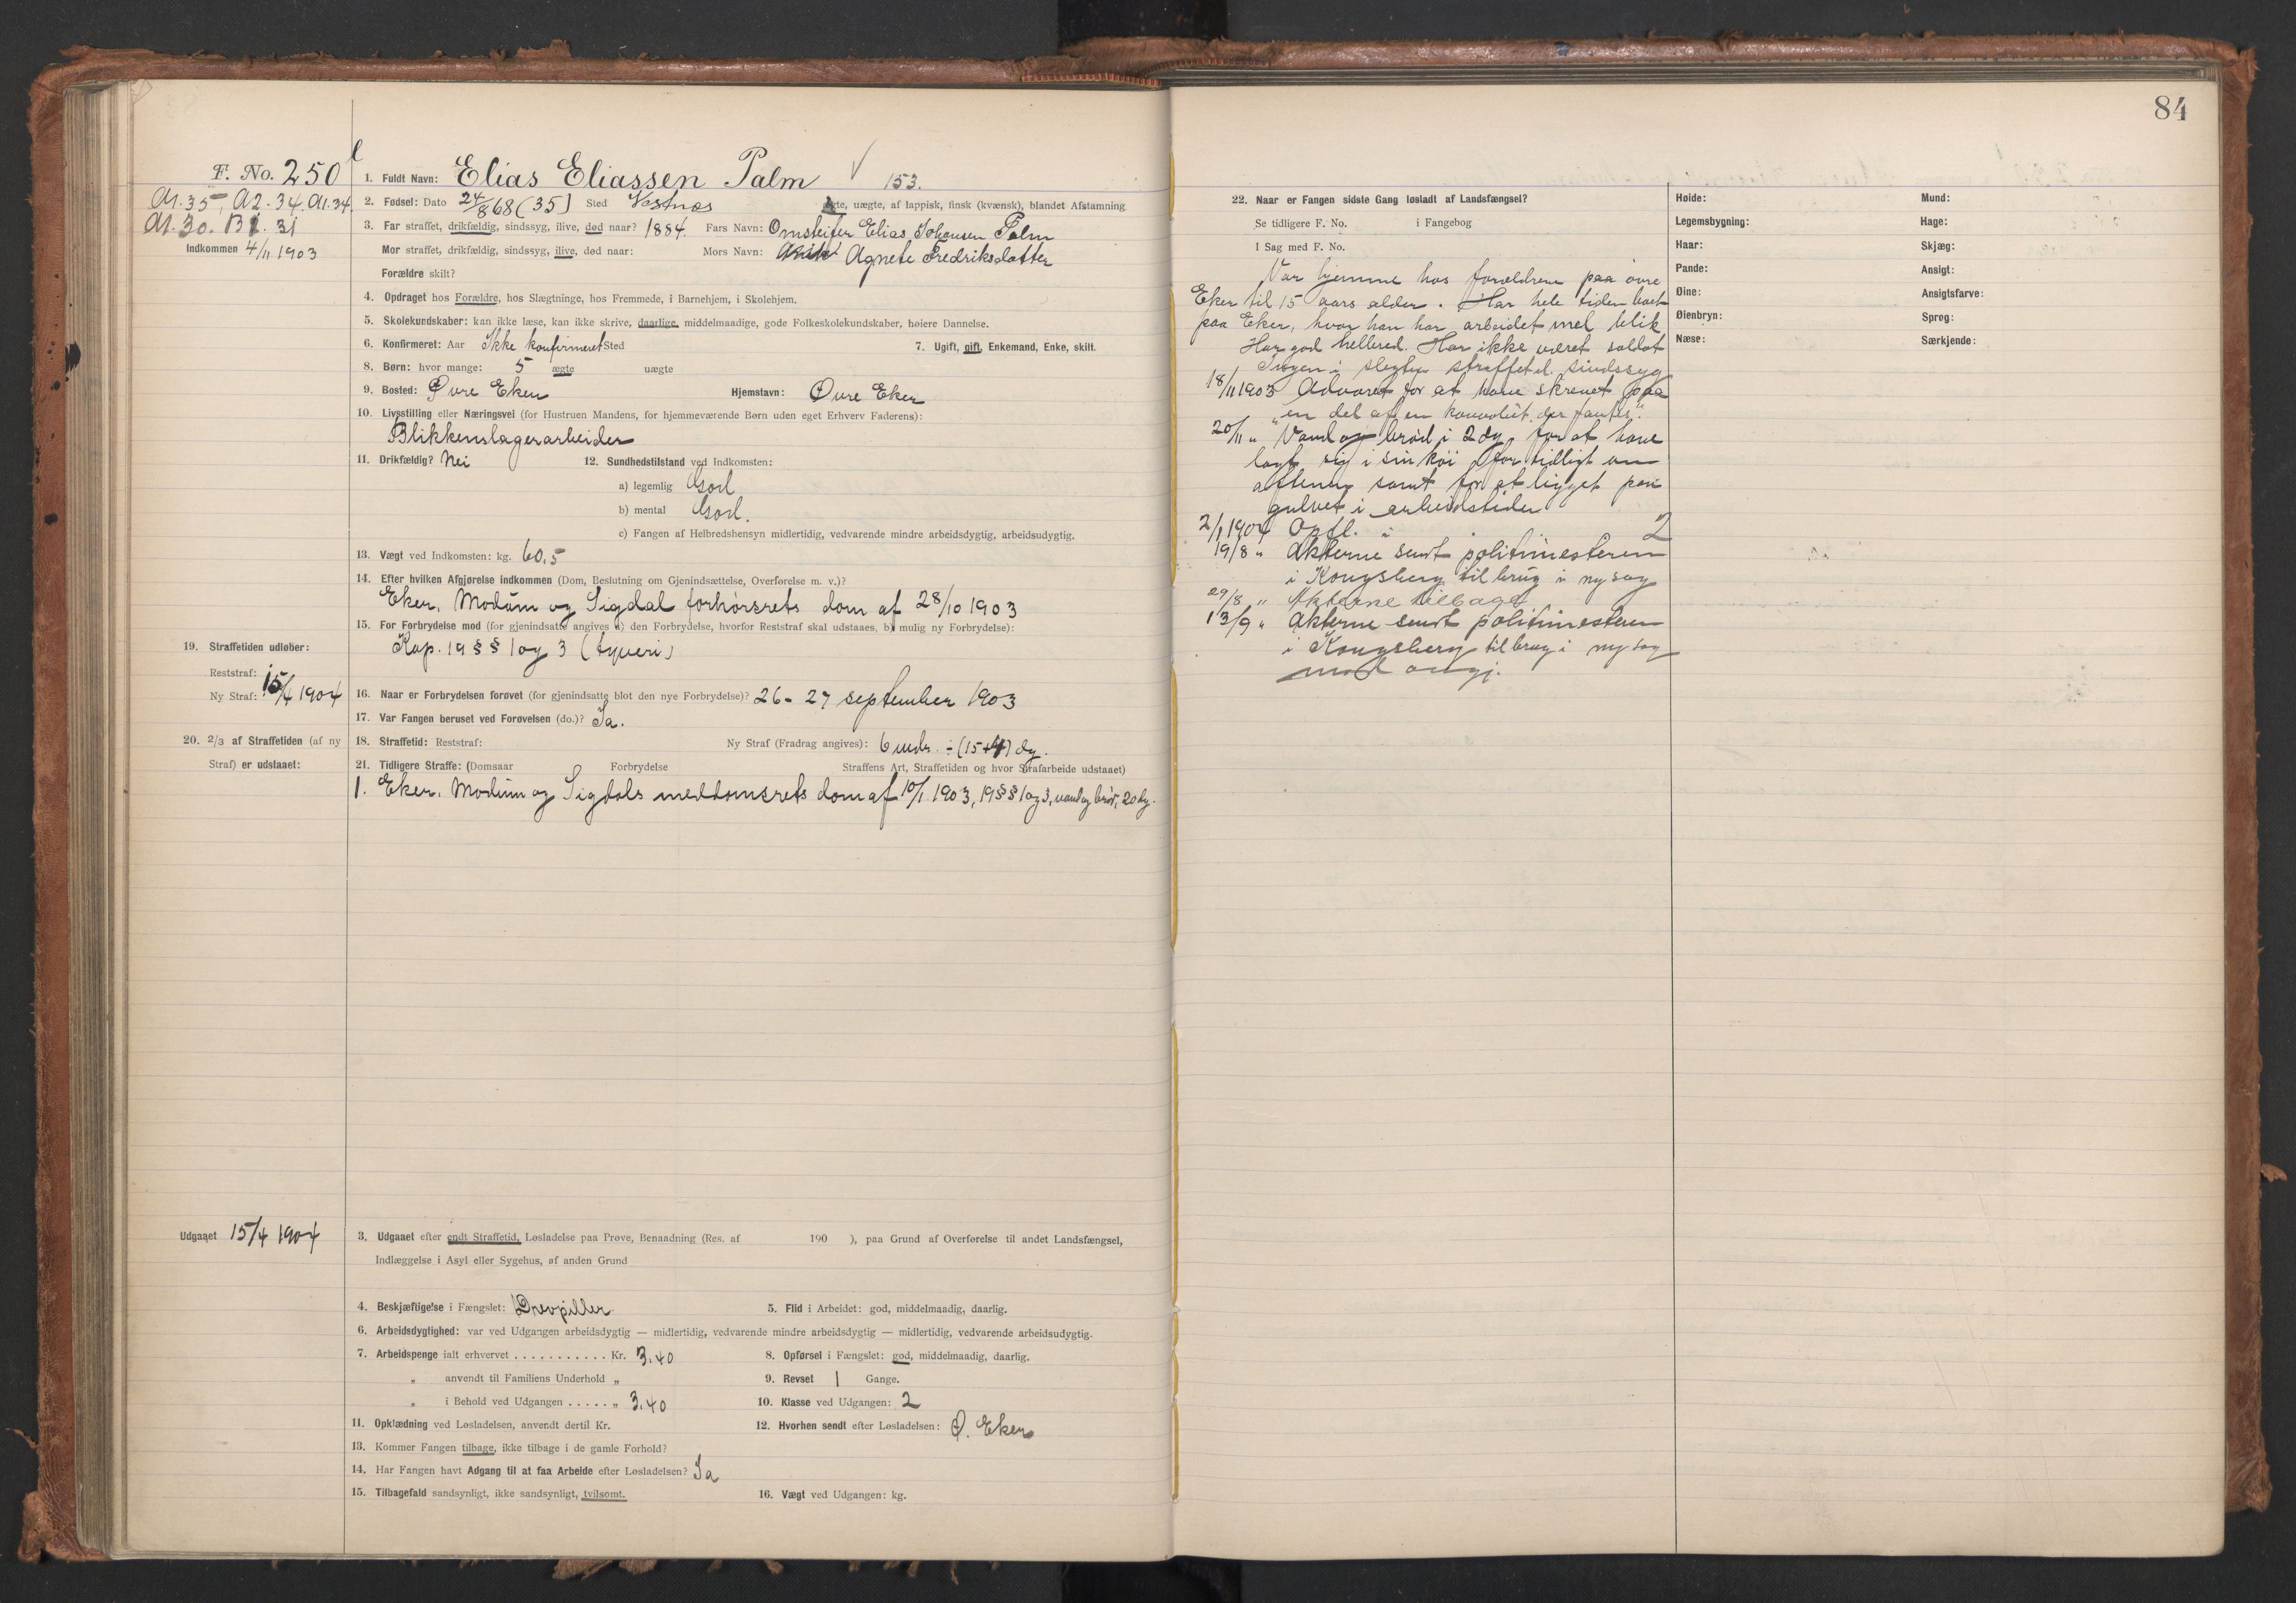 84
F. No. 250
A1.35, A2.34. A1.34.
A1.30. B1.31
Indkommen 4/11 1903
1. Fuldt Navn: Elias Eliassen Palm 153.
2. Fødsel: Dato 24/8 68 (35) Sted Vestnes ægte, uægte, af lappisk, finsk (kvænsk), blandet Afstamning
3. Far straffet, drikfældig, sindssyg, ilive, død naar? 1884. Fars Navn: Omstreifer Elias Johansen Palm
Mor straffet, drikfældig, sindssyg, ilive, død naar: Mors Navn: Agnete Fredriksdatter
Forældre skilt?
4. Opdraget hos Forældre, hos Slægtninge, hos Fremmede, i Barnehjem, i Skolehjem.
5. Skolekundskaber: kan ikke læse, kan ikke skrive, daarlige, middelmaadige, gode Folkeskolekundskaber, høiere Dannelse.
6. Konfirmeret: Aar Ikke konfirmeret Sted 7. Ugift, gift, Enkemand, Enke, skilt.
8. Børn: hvor mange: 5 ægte uægte
9. Bosted: Øvre Eker Hjemstavn: Øvre Eker
10. Livsstilling eller Næringsvei (for Hustruen Mandens, for hjemmeværende Børn uden eget Erhverv Faderens):
Blikkenslagerarbeider
11. Drikfældig? Nei 12. Sundhedstilstand ved Indkomsten:
a) legemlig God
b) mental God.
c) Fangen af Helbredshensyn midlertidig, vedvarende mindre arbeidsdygtig, arbeidsudygtig.
13. Vægt ved Indkomsten: kg. 60,5
14. Efter hvilken Afgjørelse indkommen (Dom, Beslutning om Gjenindsættelse, Overførelse m. v.)?
Eker, Modum og Sigdal forhørsrets dom af 28/10 1903
15. For Forbrydelse mod (for gjenindsatte angives a) den Forbrydelse, hvorfor Reststraf skal udstaaes, b) mulig ny Forbrydelse):
Kap. 19 §§ 1 og 3 (tyveri)
19. Straffetiden udløber:
Reststraf:
Ny Straf: 15/4 1904
16. Naar er Forbrydelsen forøvet (for gjenindsatte blot den nye Forbrydelse)? 26-27 september 1903
17. Var Fangen beruset ved Forøvelsen (do.)? Ja.
20. 2/3 af Straffetiden (af ny
Straf) er udstaaet:
18. Straffetid: Reststraf: Ny Straf (Fradrag angives): 6 mdr. ÷ (15+4) dg.
21. Tidligere Straffe: (Domsaar Forbrydelse Straffens Art, Straffetiden og hvor Strafarbeide udstaaet)
1. Eker, Modum og Sigdals meddomsrets dom af 10/1 1903, 19 §§ 1 og 3, vand og brød, 20 dg.
Udgaaet 15/4 1904
3. Udgaaet efter endt Straffetid, Løsladelse paa Prøve, Benaadning (Res. af 190 ), paa Grund af Overførelse til andet Landsfængsel,
Indlæggelse i Asyl eller Sygehus, af anden Grund
4. Beskjæftigelse i Fængslet: Drevpiller. 5. Flid i Arbeidet: god, middelmaadig, daarlig.
6. Arbeidsdygtighed: var ved Udgangen arbeidsdygtig — midlertidig, vedvarende mindre arbeidsdygtig — midlertidig, vedvarende arbeidsudygtig.
7. Arbeidspenge ialt erhvervet ........... Kr. 3.40 8. Opførsel i Fængslet: god, middelmaadig, daarlig.
„ anvendt til Familiens Underhold „ 9. Revset 1 Gange.
„ i Behold ved Udgangen ..... „ 3.40 10. Klasse ved Udgangen: 2
11. Opklædning ved Løsladelsen, anvendt dertil Kr. 12. Hvorhen sendt efter Løsladelsen: Ø. Eker
13. Kommer Fangen tilbage, ikke tilbage i de gamle Forhold?
14. Har Fangen havt Adgang til at faa Arbeide efter Løsladelsen? Ja
15. Tilbagefald sandsynligt, ikke sandsynligt, tvilsomt. 16. Vægt ved Udgangen: kg.
22. Naar er Fangen sidste Gang løsladt af Landsfængsel?
Se tidligere F. No. i Fangebog
I Sag med F. No.
Var hjemme hos forældrene paa øvre
Eker til 15 aars alder. Har hele tiden boet
paa Eker, hvor han har arbeidet med blik
Har god helbred. Har ikke været soldat
Ingen i slegten straffet el. sindssyg
18/11 1903 Advaret for at have skrevet paa
„en del af en konvolut, der fantes".
20/11 „ Vand og brød i 2 dg. for at have
lagt sig i sin køi for tidligt om
aftenen samt for at ligget paa
gulvet i arbeidstiden
2/1 1904 Opfl. i 2
19/8 „ Akterne sendt politimesteren
i Kongsberg til brug i ny sag
29/8 „ Akterne tilbage
13/9 „ Akterne sendt politimesteren
i Kongsberg til brug i ny sag
Høide: Mund:
Legemsbygning: Hage:
Haar: Skjæg:
Pande: Ansigt:
Øine: Ansigtsfarve:
Øienbryn: Sprog:
Næse: Særkjende: